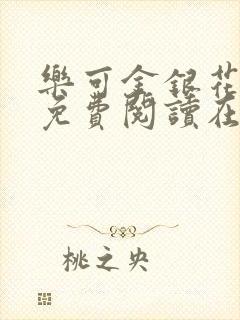 樂可金銀花
免費閱讀在
桃之央